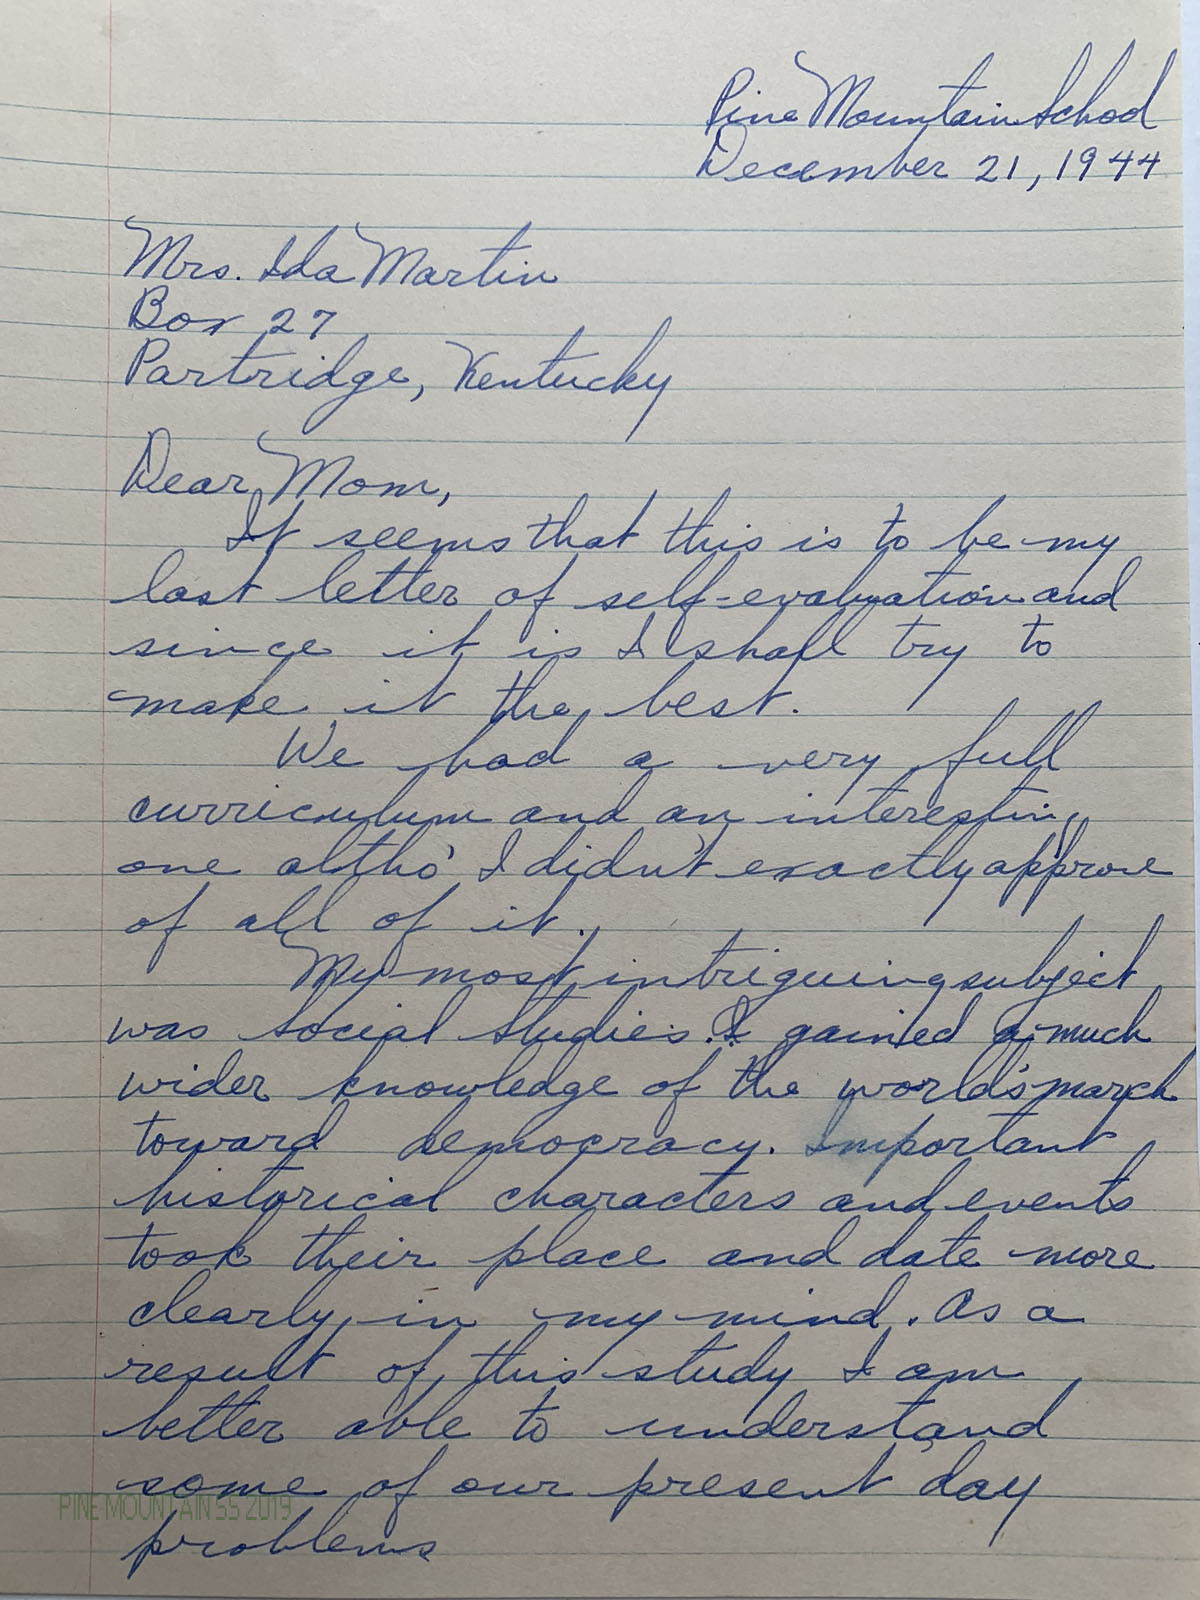 Pine Mountain School
December 21, 1944
Mrs. Ida Martin
Box 27
Partridge, Kentucky
Dear Mom,
It seems that this is to be my
last letter of self-evaluation and
since it is I shall try to
make it the best.
We had a very full
curriculum and an interesting
one altho' I didn't exactly approve
of all of it.
My most intriguing subject
was social studies. I gained a much
wider knowledge of the world's march
toward democracy. Important
historical characters and events
took their place and date more
clearly in my mind. As a
result of this study I am
better able to understand
some of our present day
PINE MOUNTAIN SS 2019
problems